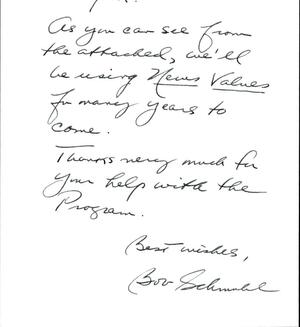 As you can see from
the attached, we'll
be using News Values
for many years to
come.
Thanks very much for
your help with the
Program.
Best wishes,
Bob Schmuhl